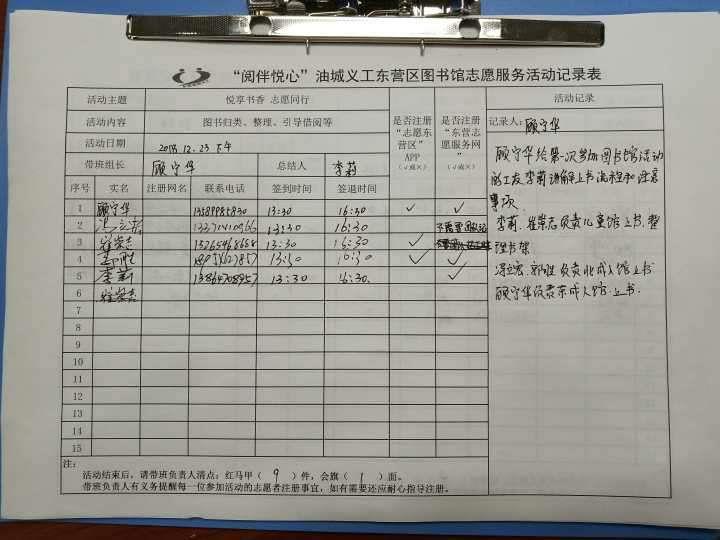 “阅伴悦心”油城义工东营区图书馆志愿服务活动记录表
活动主题 悦享书香 志愿同行 是否注册“志愿东营区”APP（√或×） 是否注册“东营志愿服务网”（√或×） 活动记录
活动内容 图书归类、整理、引导借阅等 记录人：顾宁华
活动日期 2018.12.23 下午
带班组长 顾宁华 总结人 李莉
序号 实名 注册网名 联系电话 签到时间 签退时间
1 顾宁华 13:30 16:30 √ √
2 冯立宏 13:30 16:30
3 崔荣志 13:30 16:30 √
4 郭胜 13:30 16:30 √ √
5 李莉 13864708957 13:30 16:30. √
6 崔荣志
7
8
9
10
11
12
13
14
15
顾宁华给第一次参加图书馆活动
的工友李莉讲解上书流程和注意
事项.
李莉、崔荣志负责儿童馆上书.整
理书架.
冯立宏、郭胜负责北成人馆上书.
顾宁华负责东成人馆.上书.
注：
活动结束后，请带班负责人清点：红马甲（ 9 ）件，会旗（ 1 ）面。
带班负责人有义务提醒每一位参加活动的志愿者注册事宜，如有需要还应耐心指导注册。